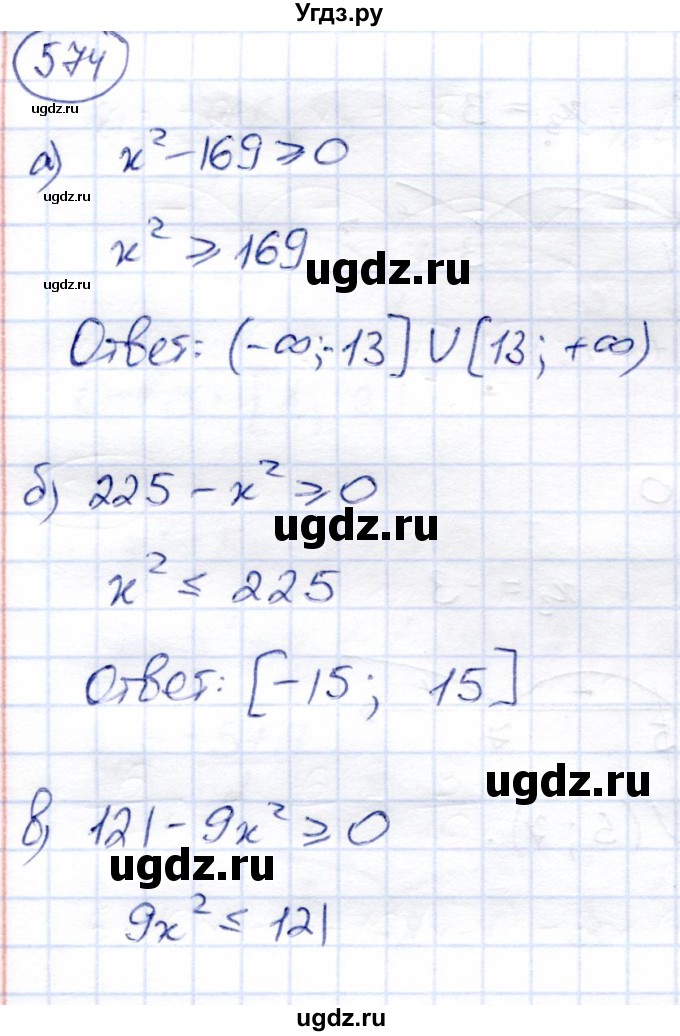 Угдз.ру
574
ugdz.ru
а) x² - 169 ⩾ 0
ugdz.ru
x² ⩾ 169
ugdz.ru
ugdz.ru
Ответ: (-∞; -13] ∪ [13; +∞)
б) 225 - x² ⩾ 0
ugdz.ru
x² ≤ 225
Ответ: [-15; 15]
ugdz.ru
в) 121 - 9x² ⩾ 0
9x² ≤ 121
ugdz.ru